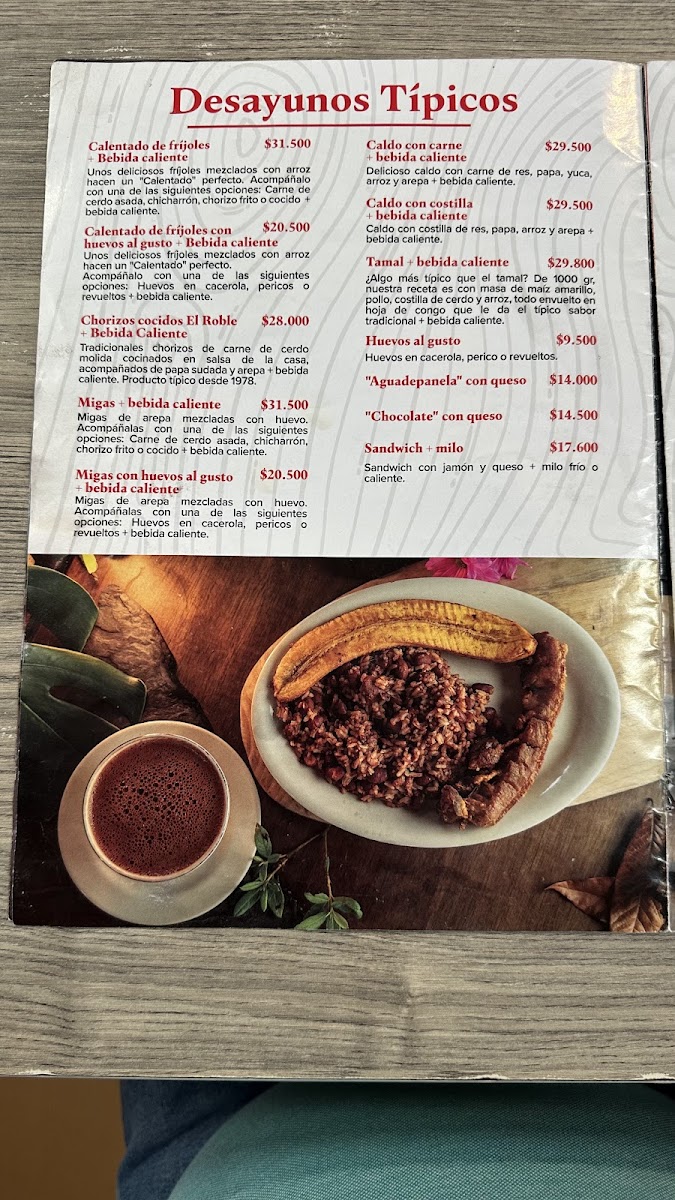 Desayunos Típicos
Calentado de fríjoles $31.500
+ Bebida caliente
Unos deliciosos fríjoles mezclados con arroz
hacen un "Calentado" perfecto. Acompáñalo
con una de las siguientes opciones: Carne de
cerdo asada, chicharrón, chorizo frito o cocido +
bebida caliente.
Calentado de fríjoles con $20.500
huevos al gusto + Bebida caliente
Unos deliciosos fríjoles mezclados con arroz
hacen un "Calentado" perfecto.
Acompáñalo con una de las siguientes
opciones: Huevos en cacerola, pericos o
revueltos + bebida caliente.
Chorizos cocidos El Roble $28.000
+ Bebida Caliente
Tradicionales chorizos de carne de cerdo
molida cocinados en salsa de la casa,
acompañados de papa sudada y arepa + bebida
caliente. Producto típico desde 1978.
Migas + bebida caliente $31.500
Migas de arepa mezcladas con huevo.
Acompáñalas con una de las siguientes
opciones: Carne de cerdo asada, chicharrón,
chorizo frito o cocido + bebida caliente.
Migas con huevos al gusto $20.500
+ bebida caliente
Migas de arepa mezcladas con huevo.
Acompáñalas con una de las siguientes
opciones: Huevos en cacerola, pericos o
revueltos + bebida caliente.
Caldo con carne $29.500
+ bebida caliente
Delicioso caldo con carne de res, papa, yuca,
arroz y arepa + bebida caliente.
Caldo con costilla $29.500
+ bebida caliente
Caldo con costilla de res, papa, arroz y arepa +
bebida caliente.
Tamal + bebida caliente $29.800
¿Algo más típico que el tamal? De 1000 gr,
nuestra receta es con masa de maíz amarillo,
pollo, costilla de cerdo y arroz, todo envuelto en
hoja de congo que le da el típico sabor
tradicional + bebida caliente.
Huevos al gusto $9.500
Huevos en cacerola, perico o revueltos.
"Aguadepanela" con queso $14.000
"Chocolate" con queso $14.500
Sandwich + milo $17.600
Sandwich con jamón y queso + milo frío o
caliente.